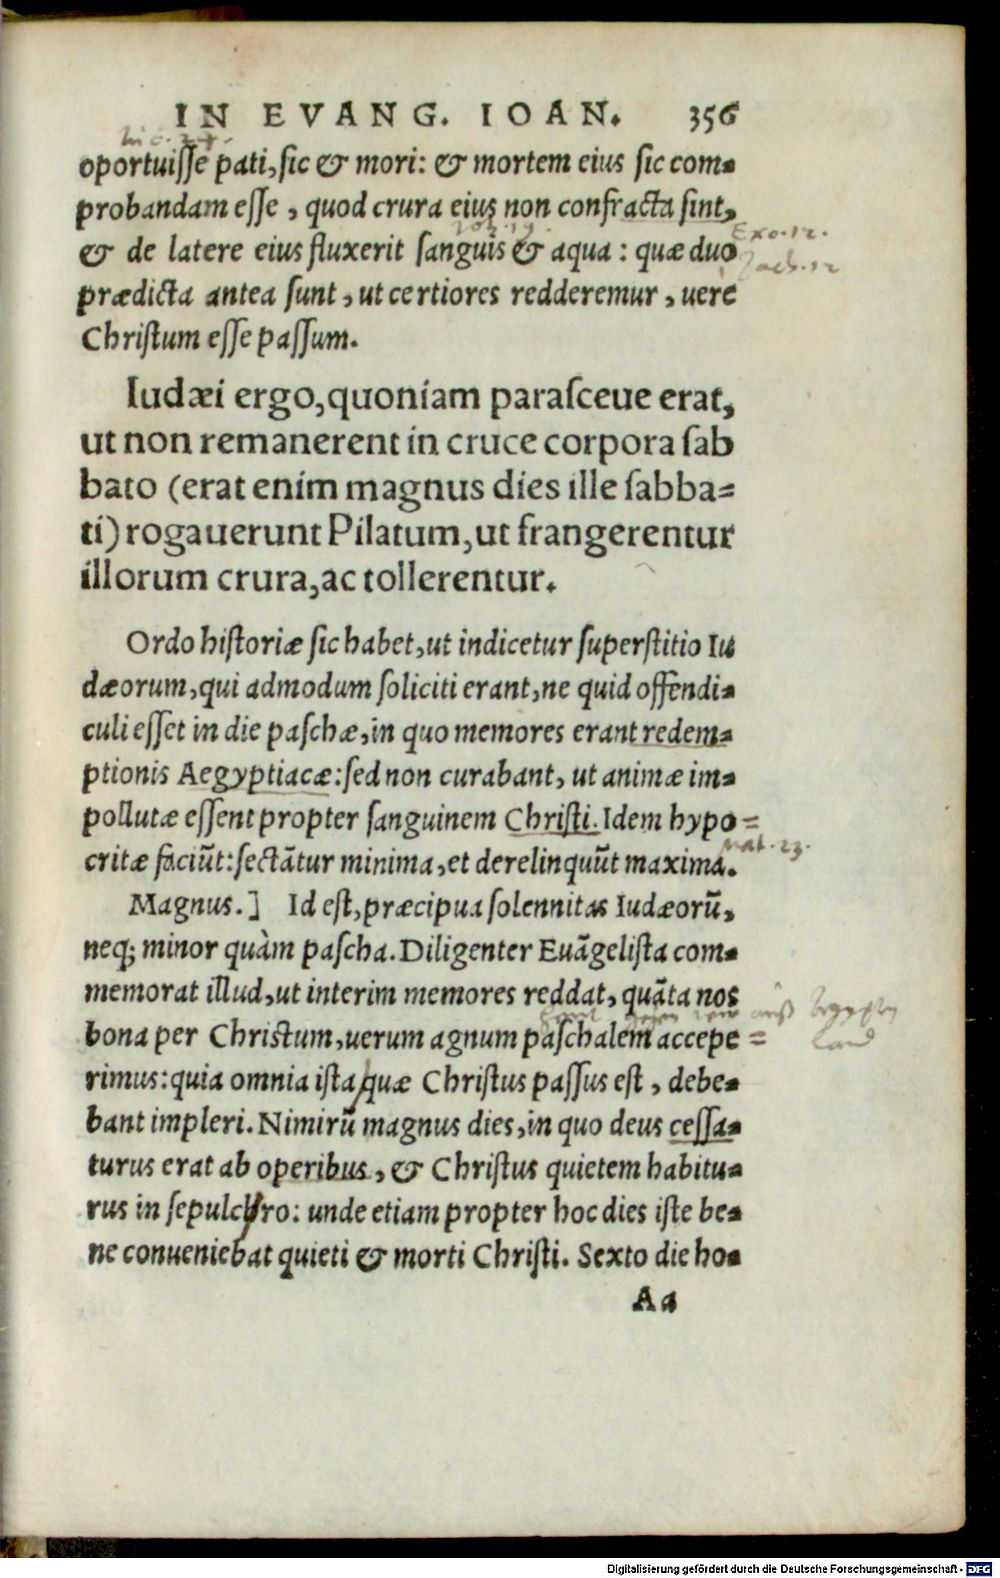 IN EVANG. IOAN. 356
oportuiſſe pati, ſic & mori: & mortem eius ſic com-
probandam eſſe, quod crura eius non confracta ſint,
Exo. 12.
& de latere eius fluxerit ſanguis & aqua: quæ duo
Zach. 12
prædicta antea ſunt, ut certiores redderemur, uerè
Chriſtum eſſe paſſum.
Iudæi ergo, quoniam paraſceue erat,
ut non remanerent in cruce corpora ſab
bato (erat enim magnus dies ille ſabba=
ti) rogauerunt Pilatum, ut frangerentur
illorum crura, ac tollerentur.
Ordo hiſtoriæ ſic habet, ut indicetur ſuperſtitio Iu
dæorum, qui admodum ſoliciti erant, ne quid offendi-
culi eſſet in die paſchæ, in quo memores erant redem-
ptionis Aegyptiacæ: ſed non curabant, ut animæ im-
pollutæ eſſent propter ſanguinem Chriſti. Idem hypo=
Mat. 23.
critæ faciũt: ſectãtur minima, et derelinquũt maxima.
Magnus.] Id eſt, præcipua ſolennitas Iudæorũ,
neq; minor quàm paſcha. Diligenter Euãgeliſta com-
memorat illud, ut interim memores reddat, quãta nos
bona per Chriſtum, uerum agnum paſchalem accepe=
rimus: quia omnia iſta quæ Chriſtus paſſus eſt, debe-
bant impleri. Nimirũ magnus dies, in quo deus ceſſa-
turus erat ab operibus, & Chriſtus quietem habitu-
rus in ſepulchro: unde etiam propter hoc dies iſte be-
ne conueniebat quieti & morti Chriſti. Sexto die ho-
Aa
Digitalisierung gefördert durch die Deutsche Forschungsgemeinschaft - DFG